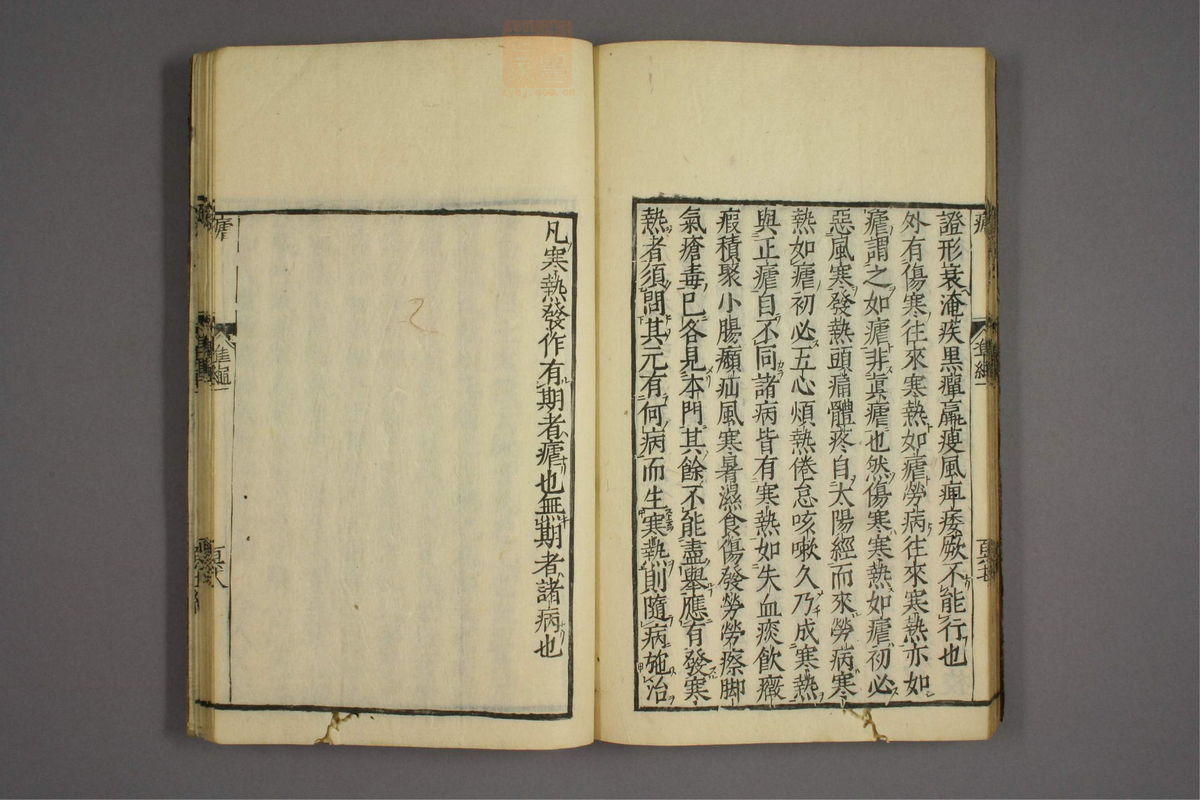 證形衰淹疾黒癉羸痩風痺痿厥不能行也
外有傷寒往來寒熱如瘧勞病往來寒熱亦如
瘧謂之如瘧非眞瘧也然傷寒寒熱如瘧初必
惡風寒發熱頭痛體疼自太陽經而來勞病寒
熱如瘧初必五心煩熱倦怠咳嗽久乃成寒熱
與正瘧自不同諸病皆有寒熱如失血痰飲癥
瘕積聚小腸㿗疝風寒暑濕食傷發勞勞瘵脚
氣瘡毒已各見本門其餘不能盡舉應有發寒
熱者須問其元有何病而生寒熱則隨病施治
凡寒熱發作有期者瘧也無期者諸病也
瘧
準繩一